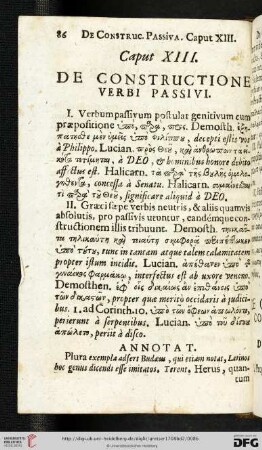 86 DE CONSTRUC. PASSIVA. Caput XIII.
Caput XIII.
DE CONSTRUCTIONE
VERBI PASSIVI.
I. Verbum passivum postulat genitivum cum
præpositione ὑπὸ, παρὰ, πρὸς. Demosth.
ὑμεῖς ὑπὸ Φιλίππου, decepti estis vos
à Philippo. Lucian. πρὸς Θεῶν, καὶ ἀνθρώπων
τετίμηται, à DEO, & hominibus honore
affectus est. Halicarn. τὰ παρὰ τῆς βουλῆς
concessa à Senatu. Halicarn.
τι παρὰ τοῦ Θεοῦ, significare aliquid à DEO.
II. Græci sæpe verbis neutris, & aliis quamvis
absolutis, pro passivis utuntur, eandémque con-
structionem illis tribuunt. Demosth.
τηλικαύτη καὶ τοιαύτη συμφορὰ
ὑπὸ τούτου, tunc in tantam atque talem calamitatem
propter istum incidit. Lucian. ἀπέθανεν ὑπὸ τῆς
γυναικὸς φαρμάκῳ, interfectus est ab uxore veneno.
Demosthen. ἐφ' οἷς δικαίως ἂν ὑπὸ
τῶν propter quæ meritò occidaris à judici-
bus. I. ad Corinth. 10. ὑπὸ τῶν ὄφεων ἀπώλοντο,
perierunt à serpentibus. Lucian. ὑπὸ τοῦ δίσκου
ἀπώλετο, periit à disco.
ANNOTAT.
Plura exempla adfert Budæus, qui etiam notat, Latinos
hoc genus dicendi esse imitatos. Terent. Herus, quan-
tum
DFG